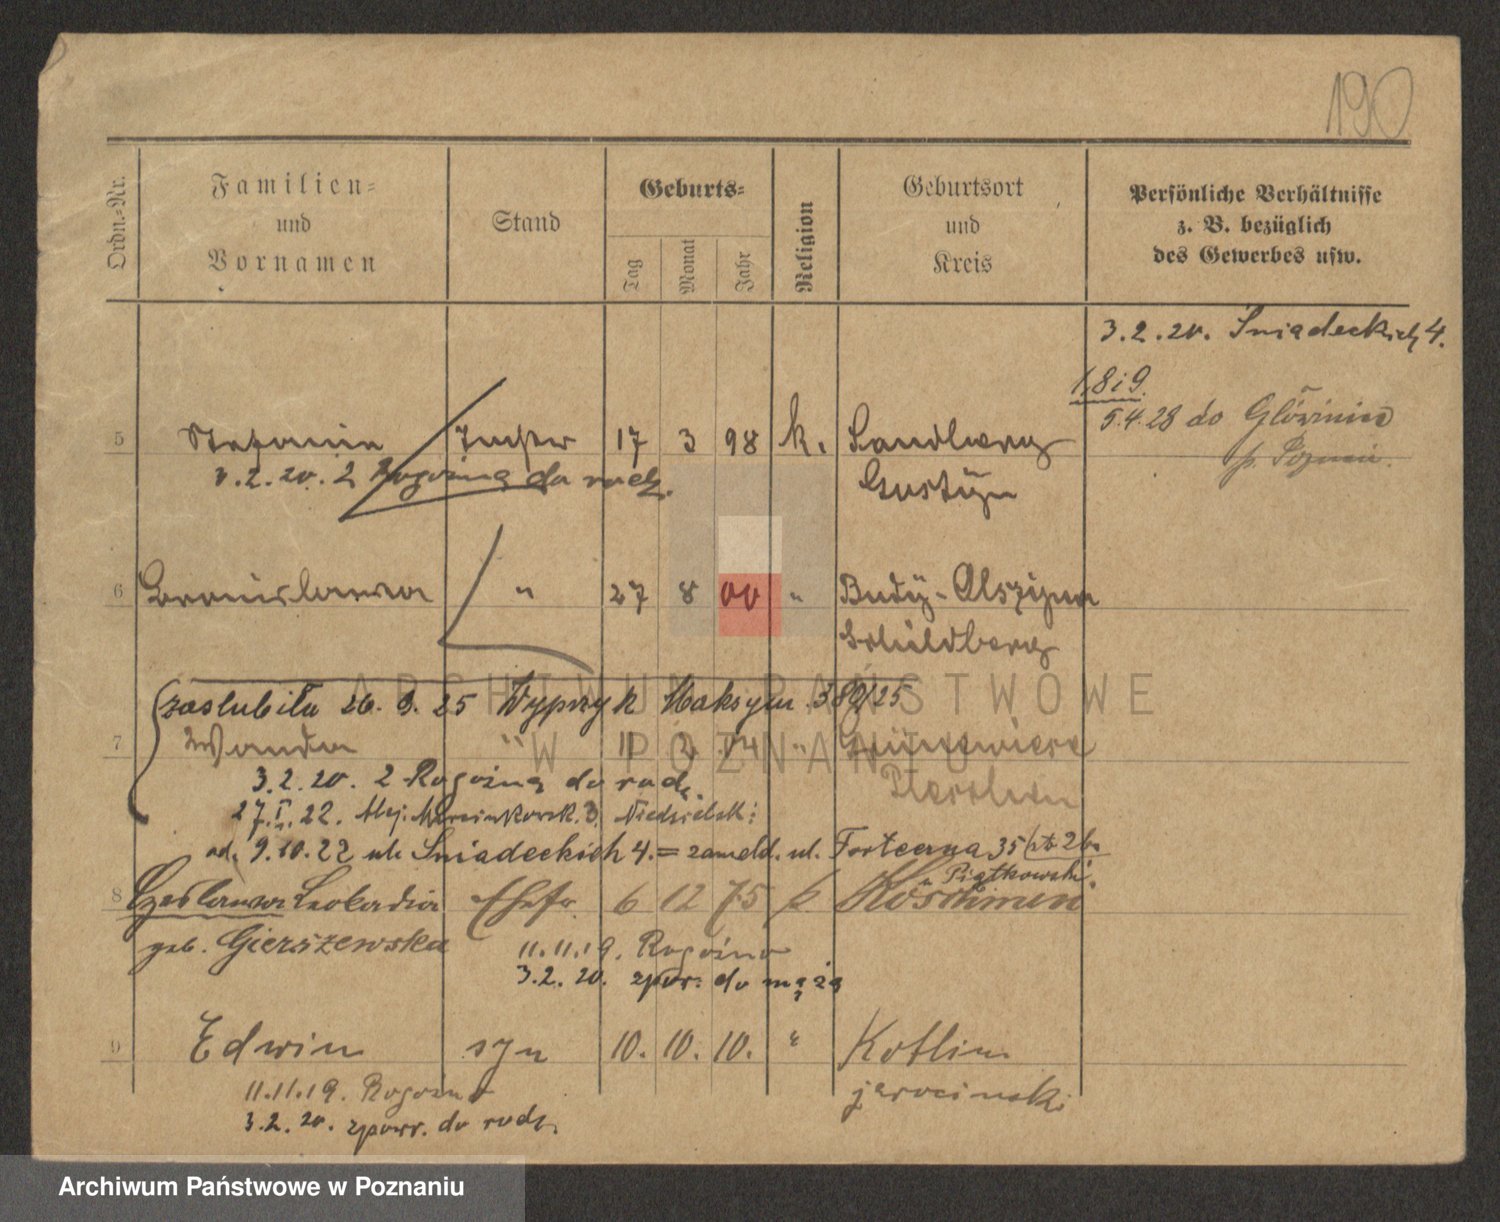 190
Ordn.-Nr.
Familien-
und
Vornamen
Stand
Geburts-
Tag
Monat
Jahr
Religion
Geburtsort
und
Kreis
Persönliche Verhältnisse
z. B. bezüglich
des Gewerbes usw.
3.2.20. Śniadeckich 4.
1,8 i 9.
5.4.28 do Główiniec
5 Stefania Tochter 17 3 98 k. Sandberg
3.2.20. z Rogoźna do rodz. Gostyn
6 Bronislawa " 27 8 00 " Budy-Olszyna
Schildberg
zaslubiła 26. 25 Wyprzyk Maksym. 389/25
7 Wanda " 11 2 04 "
3.2.20. z Rogoźna do rodz. Pleschen
27.I.22. Alej. Marcinkowsk. 3. Niedzielski
od. 9.10.22 ul. Śniadeckich 4. = zameld. ul. Forteczna 35
u Piątkowski.
8 Czeslawa Leokadia Ehefr. 6 12 75 k Koschmin
geb. Gierszewska 11.11.19. Rogoźno
3.2.20. zpow. do męża
9 Edwin syn 10. 10. 10. " Kotlin
11.11.19. Rogoźno jarocinski
3.2.20. zpowr. do rodz.
ARCHIWUM PAŃSTWOWE
W POZNANIU
Archiwum Państwowe w Poznaniu